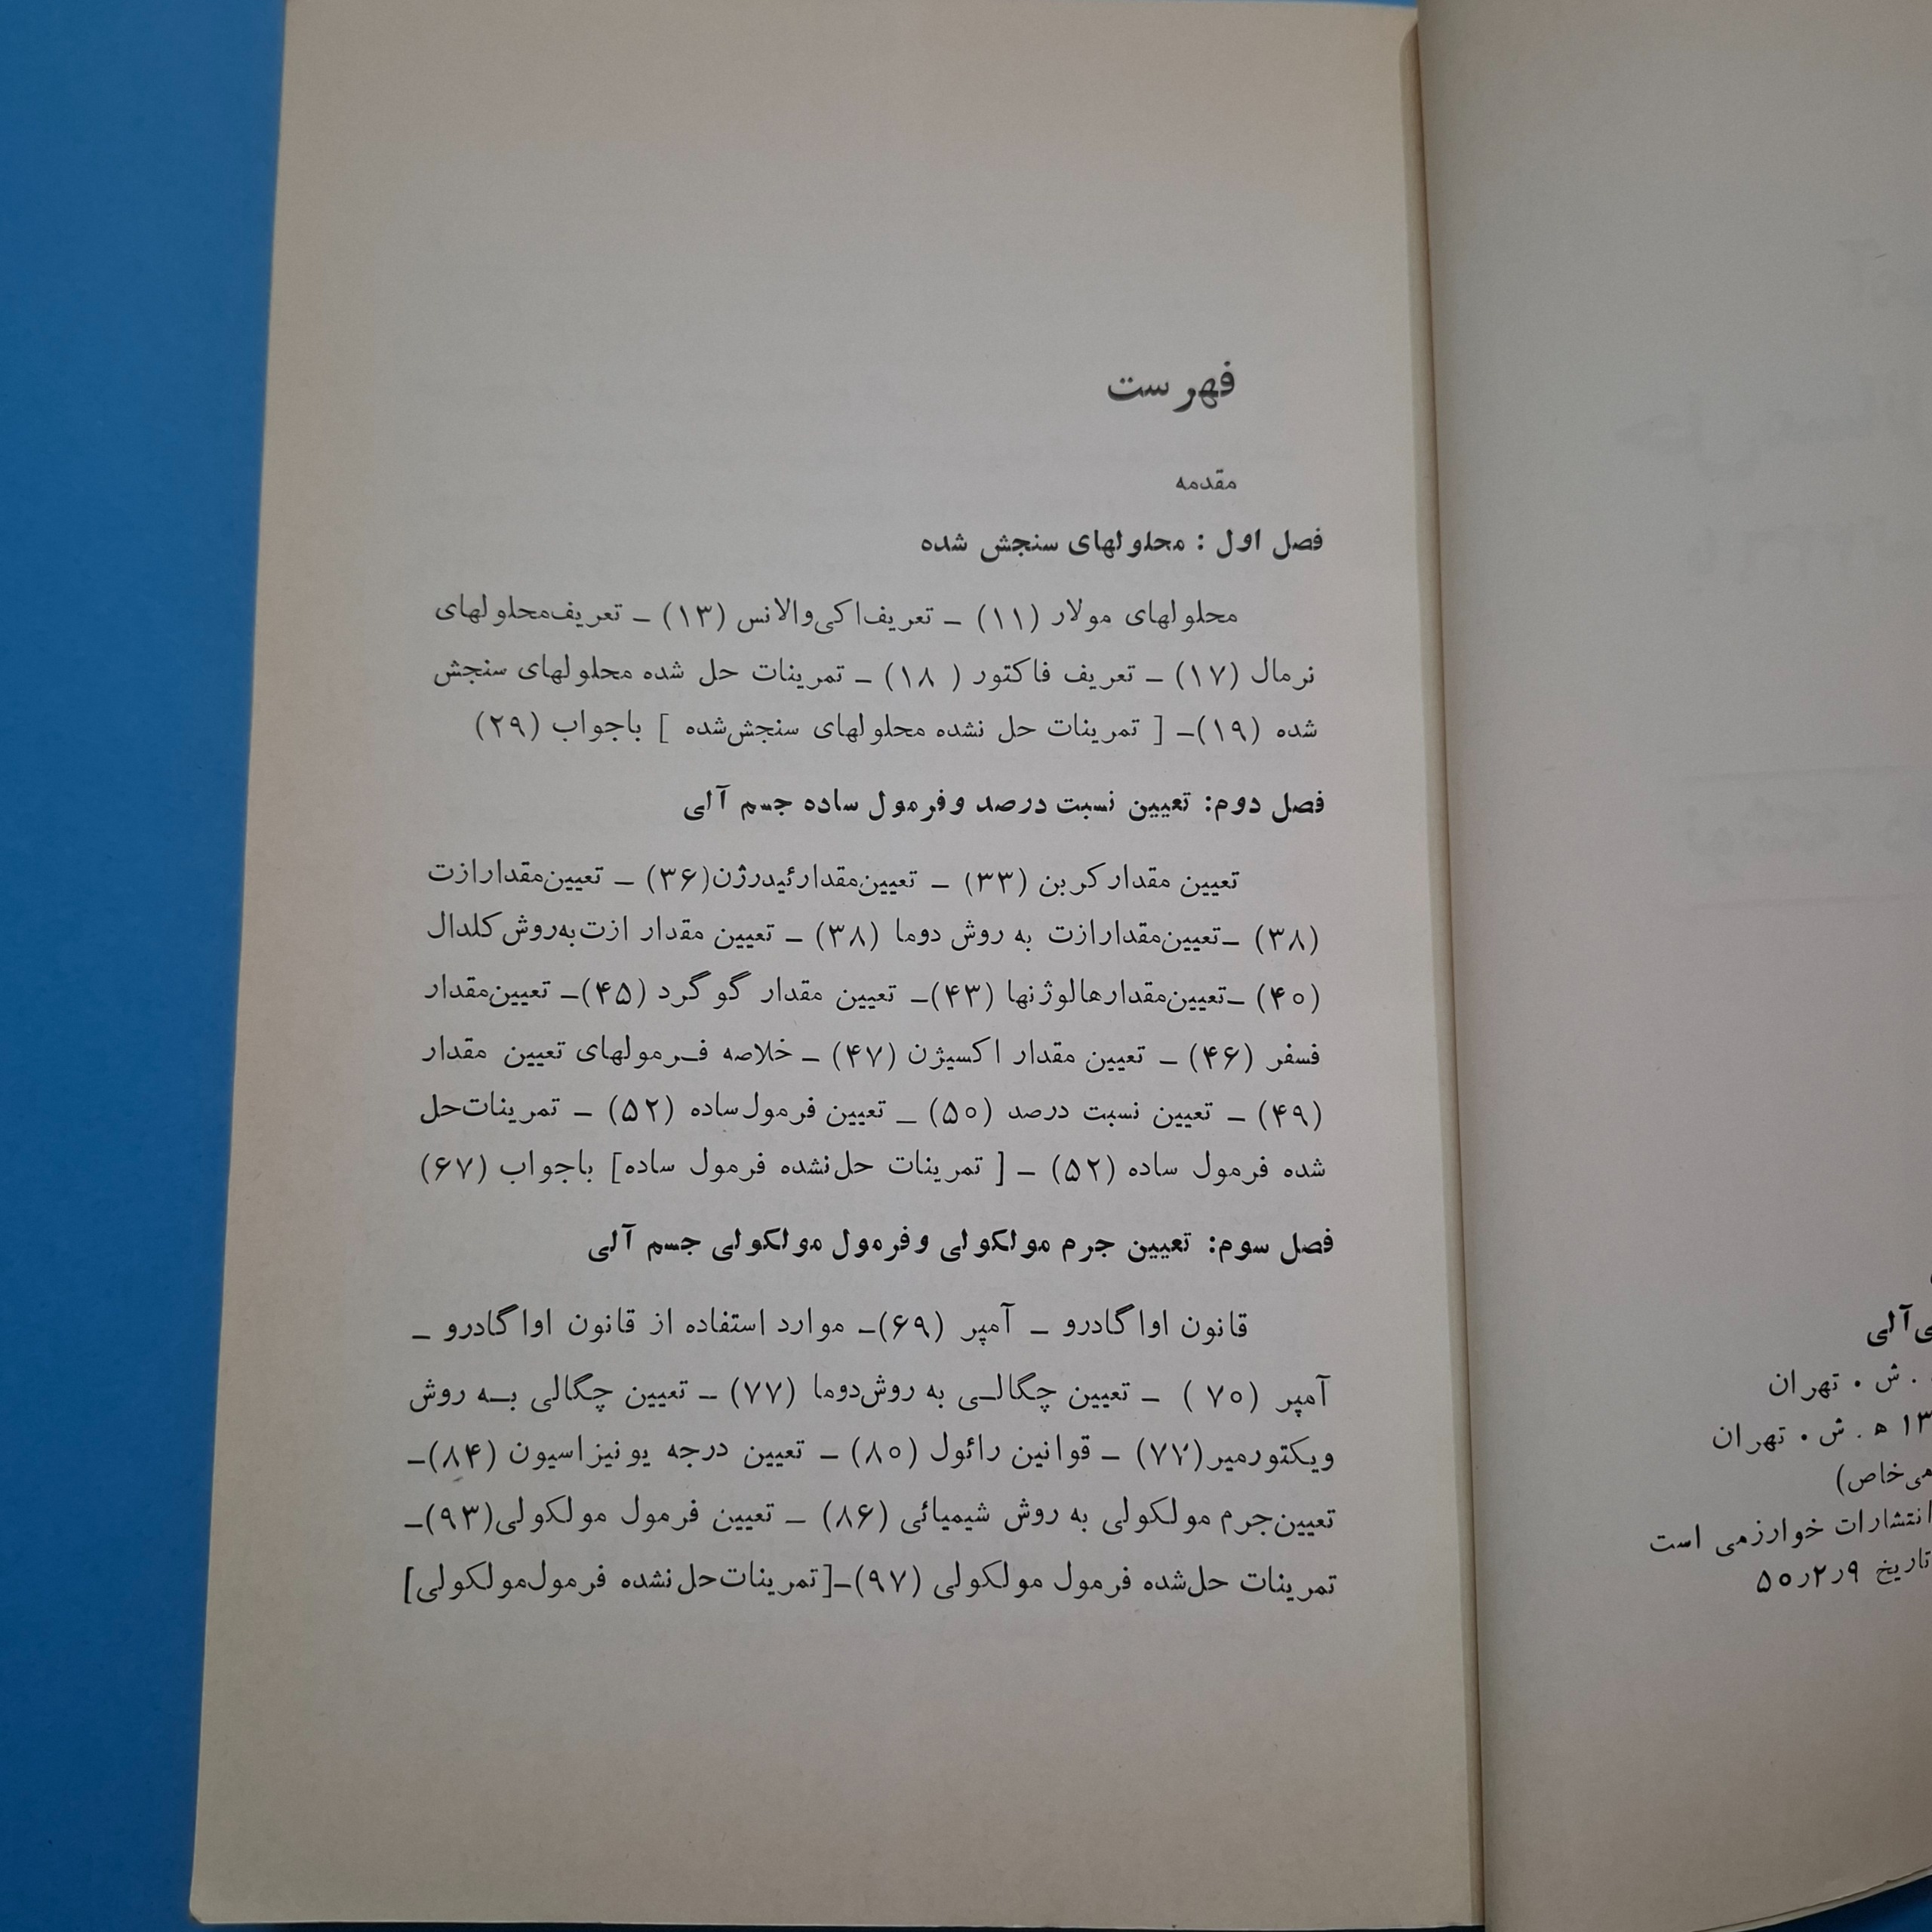 فهرست
مقدمه
فصل اول : محلولهای سنجش شده
محلولهای مولار (۱۱) ــ تعریف اکی‌والانس (۱۳) ــ تعریف‌محلولهای
نرمال (۱۷) ــ تعریف فاکتور ( ۱۸) ــ تمرینات حل شده محلولهای سنجش
شده (۱۹)ــ [ تمرینات حل نشده محلولهای سنجش‌شده ] باجواب (۲۹)
فصل دوم: تعیین نسبت درصد وفرمول ساده جسم آلی
تعیین مقدار کربن (۳۳) ــ تعیین‌مقدارئیدرژن(۳۶) ــ تعیین‌مقدارازت
(۳۸) ــتعیین‌مقدارازت به روش دوما (۳۸) ــ تعیین مقدار ازت‌به‌روش کلدال
(۴۰) ــتعیین‌مقدارهالوژنها (۴۳)ــ تعیین مقدار گوگرد (۴۵)ــ تعیین‌مقدار
فسفر (۴۶) ــ تعیین مقدار اکسیژن (۴۷) ــ خلاصه فـرمولهای تعیین مقدار
(۴۹) ــ تعیین نسبت درصد (۵۰) ــ تعیین فرمول‌ساده (۵۲) ــ تمرینات‌حل
شده فرمول ساده (۵۲) ــ [ تمرینات حل‌نشده فرمول ساده] باجواب (۶۷)
فصل سوم: تعیین جرم مولکولی وفرمول مولکولی جسم آلی
قانون اواگادرو ــ آمپر (۶۹)ــ موارد استفاده از قانون اواگادرو ــ
آمپر (۷۰ ) ــ تعیین چگالـی به روش‌دوما (۷۷) ــ تعیین چگالی بـه روش
ویکتورمیر(۷۷) ــ قوانین رائول (۸۰) ــ تعیین درجه یونیزاسیون (۸۴)ــ
تعیین‌جرم مولکولی به روش شیمیائی (۸۶) ــ تعیین فرمول مولکولی(۹۳)ــ
تمرینات حل‌شده فرمول مولکولی (۹۷)ــ[تمرینات‌حل‌نشده فرمول‌مولکولی]
ی‌آلی
. ش . تهران
۱۳ ه . ش . تهران
می‌خاص)
انتشارات خوارزمی است
تاریخ ۹ر۲ر۵۰